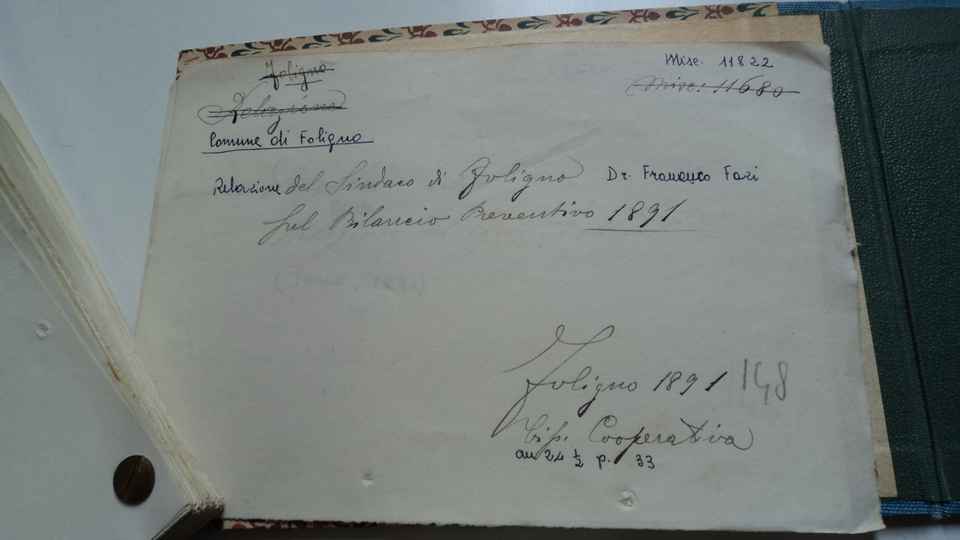 Foligno
Misc. 11822
Misc. 11680
Relazione
Comune di Foligno
Relazione del Sindaco di Foligno Dr. Francesco Fazi
sul Bilancio Preventivo 1891
Foligno 1891
148
Tip. Cooperativa
au 24 ½ p. 33